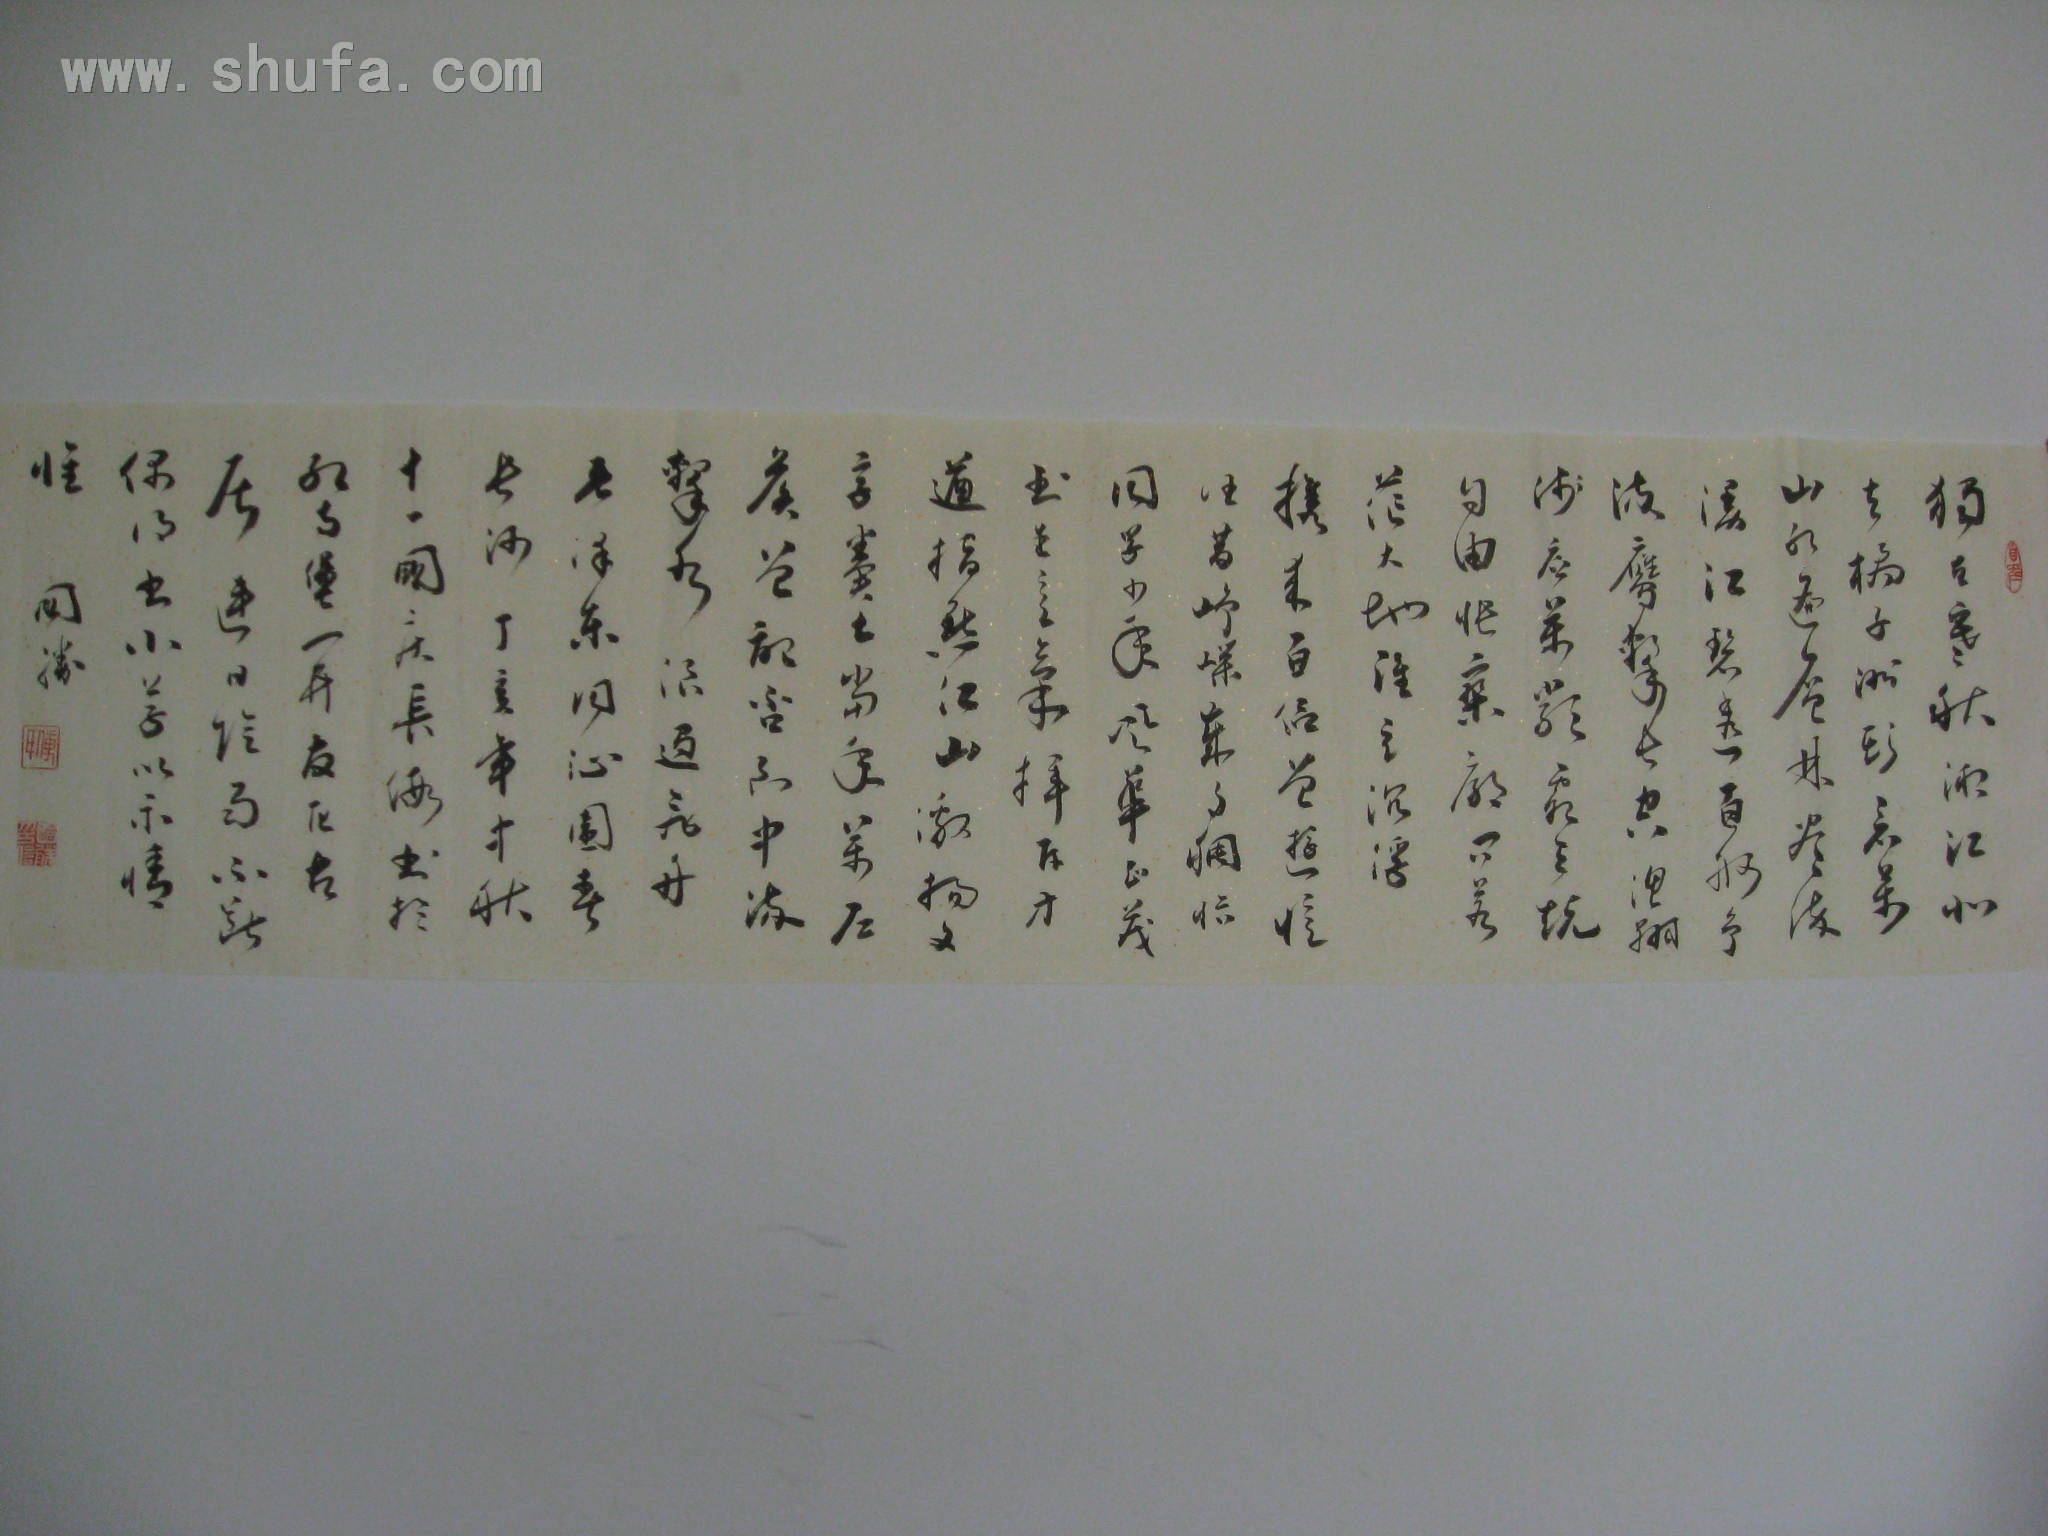 www.shufa.com
獨立寒秋湘江北
去橘子洲頭看萬
山紅遍層林盡染
漫江碧透百舸爭
流鷹擊長空魚翔
淺底萬類霜天競
自由悵寥廓問蒼
茫大地誰主沉浮
攜來百侶曾遊憶
往昔崢嶸歲月稠恰
同學少年風華正茂
書生意氣揮斥方
遒指點江山激揚文
字糞土當年萬戶
侯曾記否到中流
擊水浪遏飛舟
毛澤東同沁園春
長沙丁亥年中秋
十一國慶長假書於
連日陰雨不
偶得書小草以示情
國勝